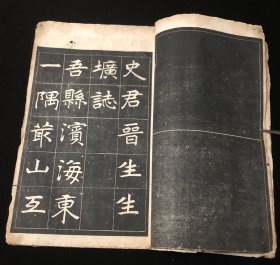 史君晉生生
壙誌
吾縣濱海東
一隅茆山互